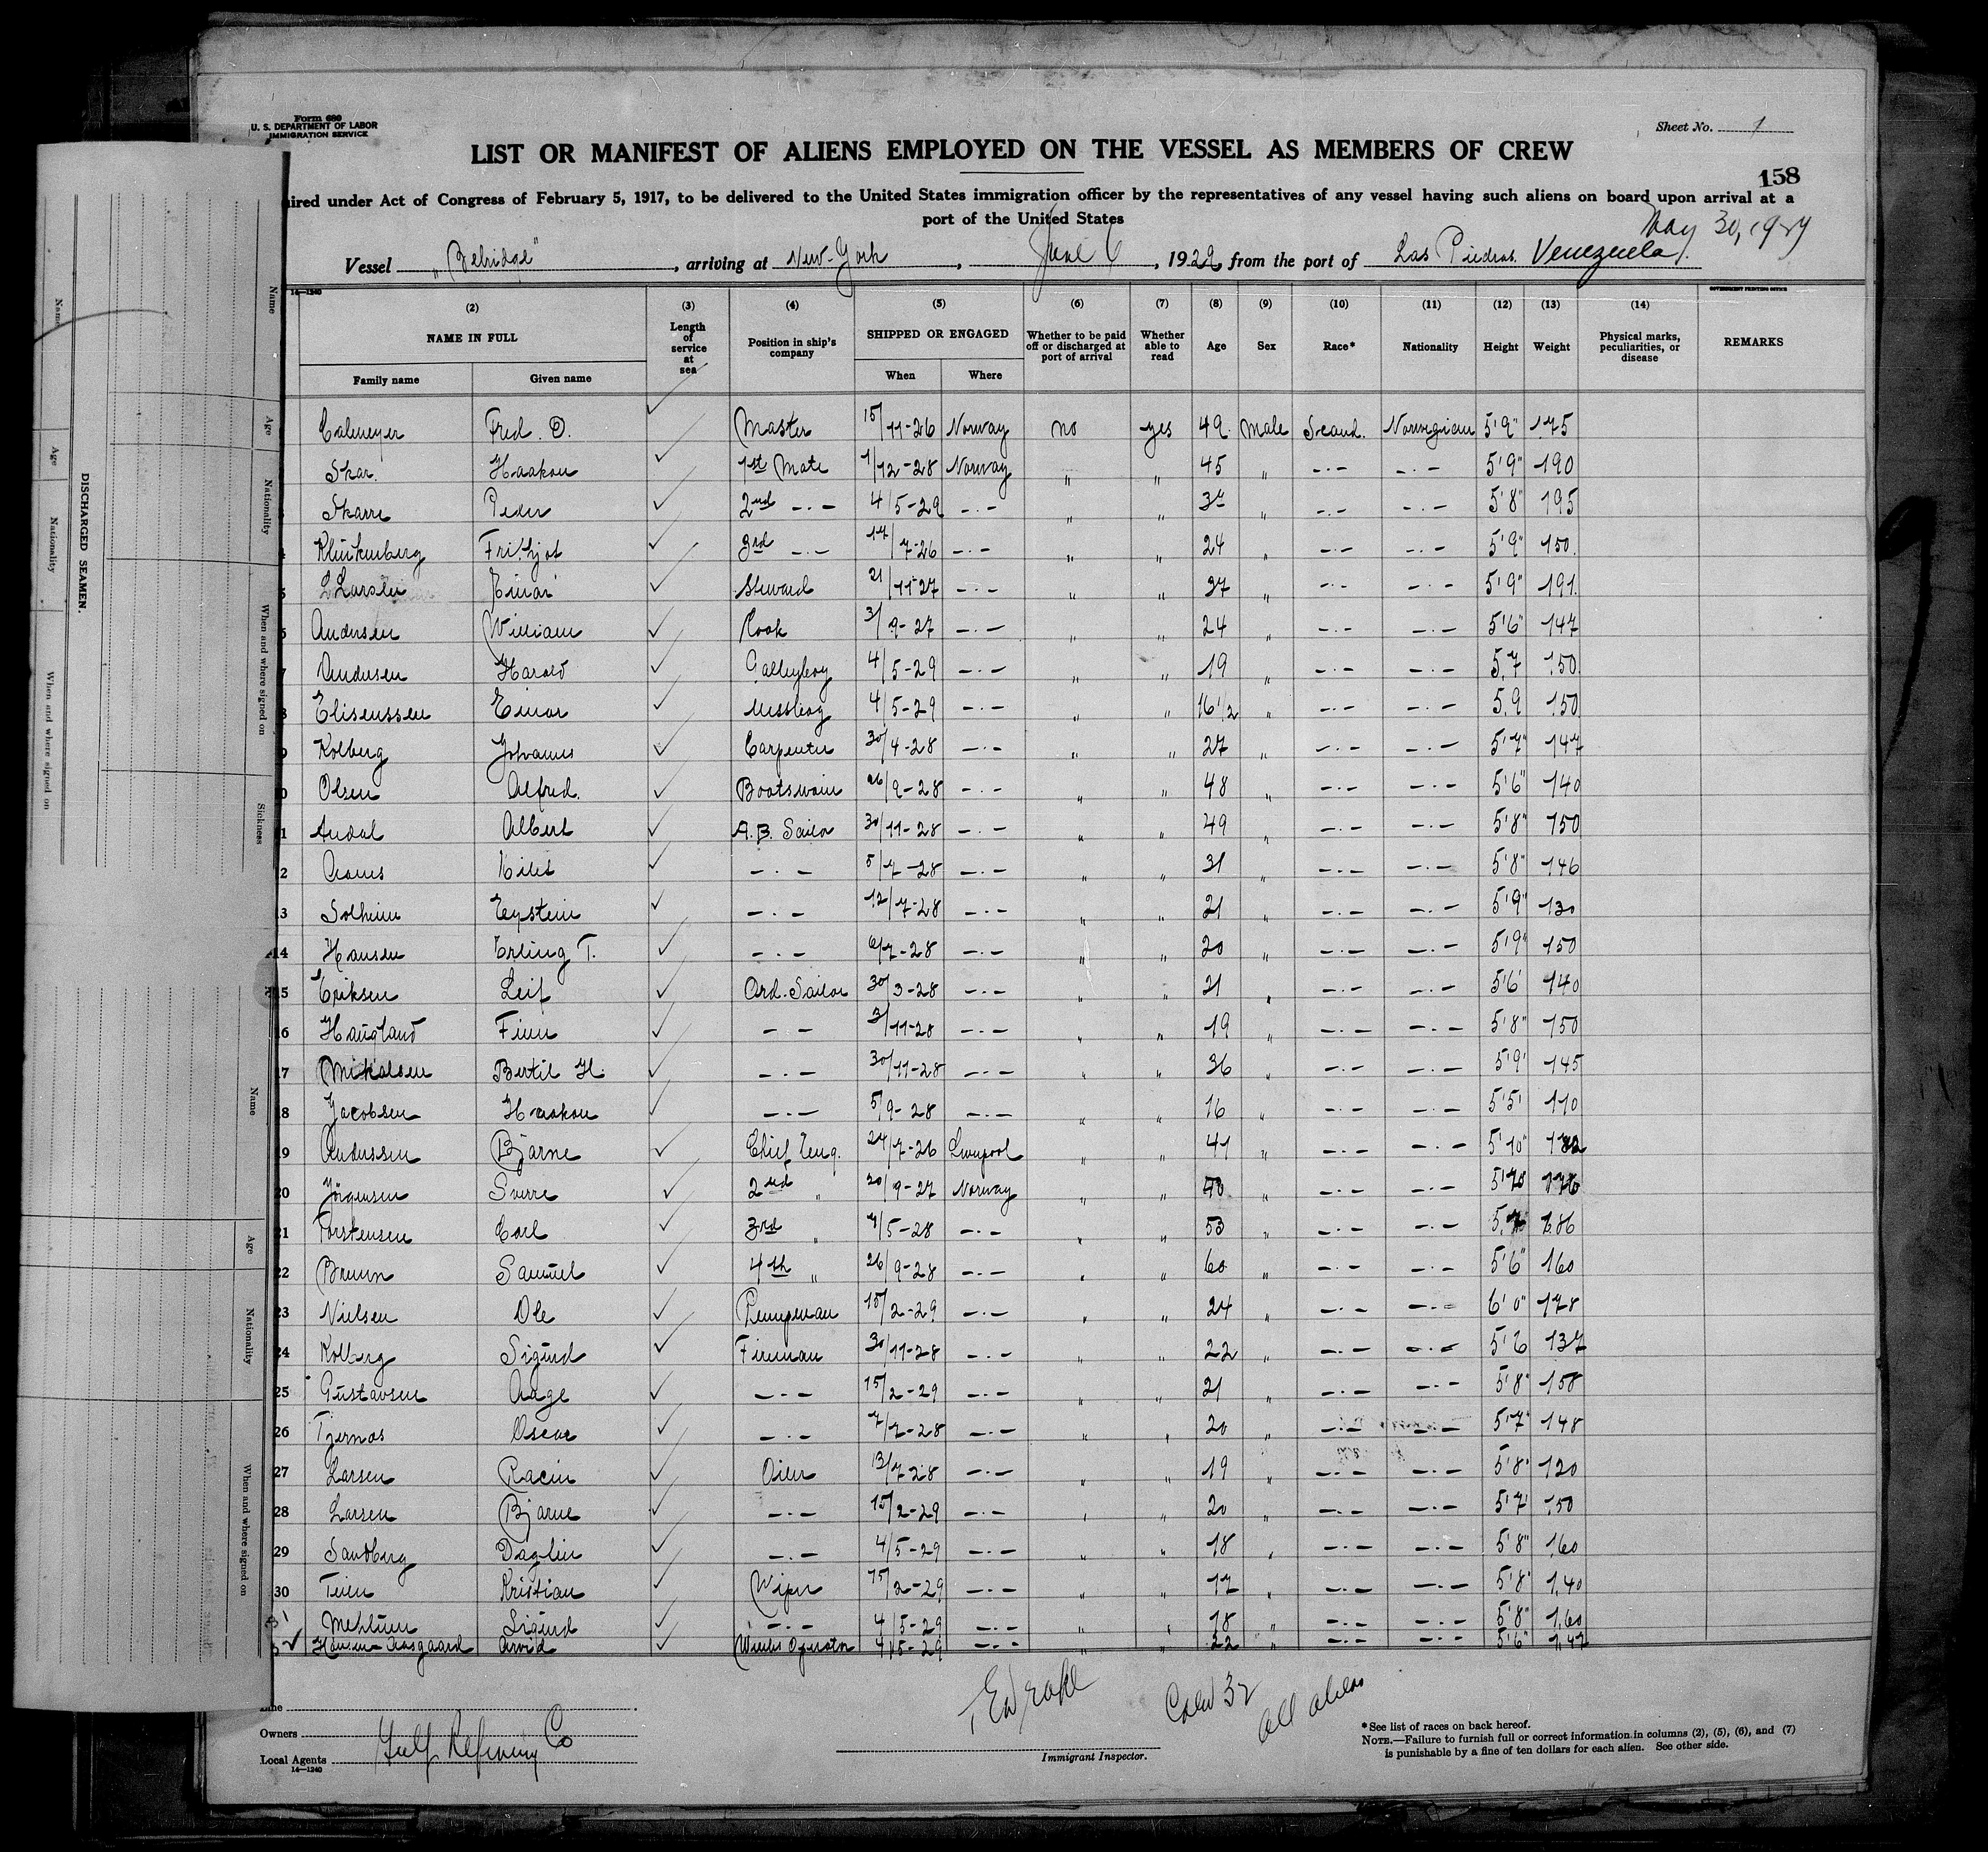 Form 680
U. S. DEPARTMENT OF LABOR
IMMIGRATION SERVICE
Sheet No. 1
LIST OR MANIFEST OF ALIENS EMPLOYED ON THE VESSEL AS MEMBERS OF CREW
158
uired under Act of Congress of February 5, 1917, to be delivered to the United States immigration officer by the representatives of any vessel having such aliens on board upon arrival at a
port of the United States
May 30, 1929
Vessel "Belridge", arriving at New-York, June 6, 1929, from the port of Las Piedras. Venezuela.
14—1240
GOVERNMENT PRINTING OFFICE
(2) (3) (4) (5) (6) (7) (8) (9) (10) (11) (12) (13) (14)
NAME IN FULL Length of service at sea Position in ship's company SHIPPED OR ENGAGED Whether to be paid off or discharged at port of arrival Whether able to read Age Sex Race* Nationality Height Weight Physical marks, peculiarities, or disease REMARKS
Family name Given name When Where
Calmeyer Fred. O. ✓ Master 15/11-26 Norway no yes 49 Male Scand. Norwegian 5'9" 175
Skar. Haakon ✓ 1st Mate 1/12-28 Norway " " 45 " -·- -·- 5'9" 190
Skarre Peder ✓ 2nd -·- 4/5-29 -·- " " " -·- -·- 5'8" 195
4 Klinkenberg Frithjof ✓ 3rd -·- 14/7-26 -·- " " 24 " -·- -·- 5'9" 150.
5 Larsen Einar ✓ Steward 21/11-27 -·- " " 37 " -·- -·- 5'9" 191.
6 Andersen William ✓ Cook 3/9-27 -·- " " 24 " -·- -·- 5'6" 147
7 Andersen Harald ✓ Galleyboy 4/5-29 -·- " " 19 " -·- -·- 5.7 150
8 Eliseussen Einar ✓ Messboy 4/5-29 -·- " " 16 1/2 " -·- -·- 5.9 150
9 Kolberg Johannes ✓ Carpenter 30/4-28 -·- " " 27 " -·- -·- 5'7" 147
0 Olsen Alfred. ✓ Boatswain 26/9-28 -·- " " 48 " -·- -·- 5'6" 140
1 Audal Albert ✓ A.B. Sailor 30/11-28 -·- " " 49 " -·- -·- 5'8" 150
2 ✓ -·- 5/7-28 -·- " " 31 " -·- -·- 5'8" 146
3 Solheim Eystein ✓ -·- 12/7-28 -·- " " 21 " -·- -·- 5'9" 130
14 Hansen Erling T. ✓ -·- 6/7-28 -·- " " 20 " -·- -·- 5'9" 150
15 Eriksen Leif ✓ Ord. Sailor 30/3-28 -·- " " 21 " -·- -·- 5'6' 140
16 Haugland Finn ✓ - - 3/11-28 -·- " " 19 " -·- -·- 5'8" 150
17 Mikalsen Bertil H. ✓ -·- 30/11-28 -·- " " 36 " -·- -·- 5'9' 145
18 Jacobsen Haakon ✓ -·- 5/9-28 -·- " " 16 " -·- -·- 5'5' 110
19 Anderssen Bjarne ✓ Chief Eng. 24/7-26 Liverpool " " 41 " -·- -·- 5'10"
20 Jörgensen Sverre ✓ 2nd " 20/9-27 Norway " " " -·- -·- 5'10
21 Torstensen Carl ✓ 3rd " 4/5-28 -·- " " 53 " -·- -·- 186
22 Bruun Samuel ✓ 4th " 26/9-28 -·- " " 60 " -·- -·- 5'6" 160
23 Nielsen Ole ✓ Pumpman 15/2-29 -·- " " 24 " -·- -·- 6'0" 178
24 Kolberg Sigurd ✓ Fireman 30/11-28 -·- " " 22 " -·- -·- 5'6 137
25 Gustavsen Aage ✓ -·- 15/2-29 -·- " " 21 " -·- -·- 5'8" 158
26 Tjernos Oscar ✓ -·- 7/7-28 -·- " " 20 " -·- -·- 5'7" 148
27 Larsen ✓ Oiler 13/7-28 -·- " " 19 " -·- -·- 5'8" 120
28 Larsen Bjarne ✓ -·- 15/2-29 -·- " " 20 " -·- -·- 5'7' 150
29 Sandberg Dagfin ✓ -·- 4/5-29 -·- " " 18 " -·- -·- 5'8" 160
30 Teien Kristian ✓ Wiper 15/2-29 -·- " " 17 " -·- -·- 5'8" 140
31 Mehlum Sigurd ✓ -·- 4/5-29 -·- " " 18 " -·- -·- 5'8" 160
✓ Hansen-Aasgaard Arvid ✓ Wireles Operator 4/5-29 -·- " " 22 " -·- -·- 5'6" 147
Line
Owners
Local Agents Gulf Refining Co
14—1240
Immigrant Inspector.
Crew 32
all aliens
*See list of races on back hereof.
NOTE.—Failure to furnish full or correct information in columns (2), (5), (6), and (7)
is punishable by a fine of ten dollars for each alien. See other side.
DISCHARGED SEAMEN.
Name
Age
Nationality
When and where signed on
Name
Age
Nationality
When and where signed on
Sickness
Name
Age
Nationality
When and where signed on